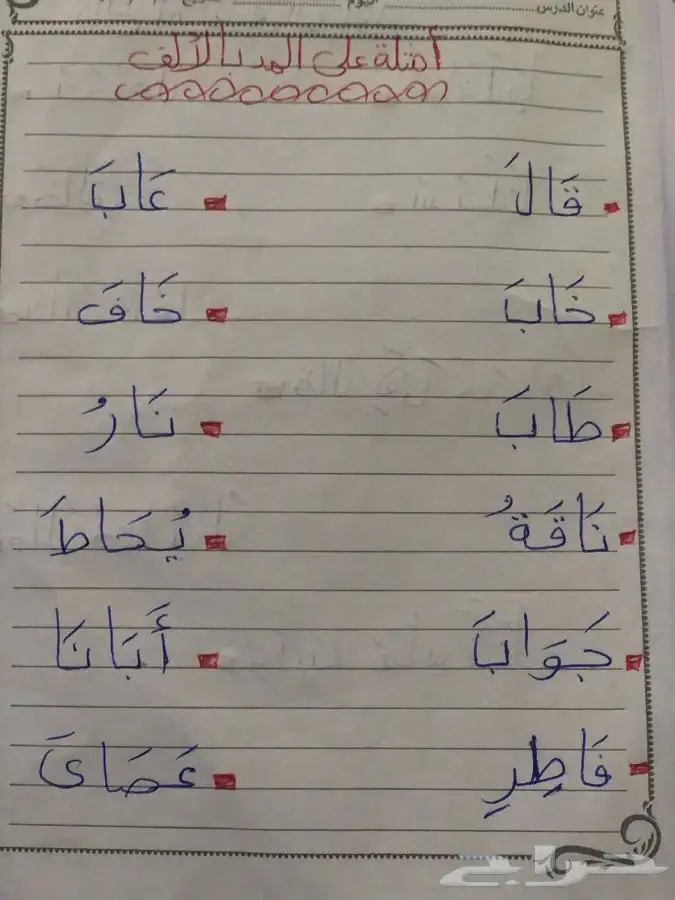 عنوان الدرس
اليوم
أمثلة على المد بالألف
قَالَ عَابَ
خَابَ خَافَ
طَابَ نَارُ
نَاقَةُ يُحَاطَ
جَوَابَ أَبَانَا
فَاطِرِ عَصَايَ
حراج